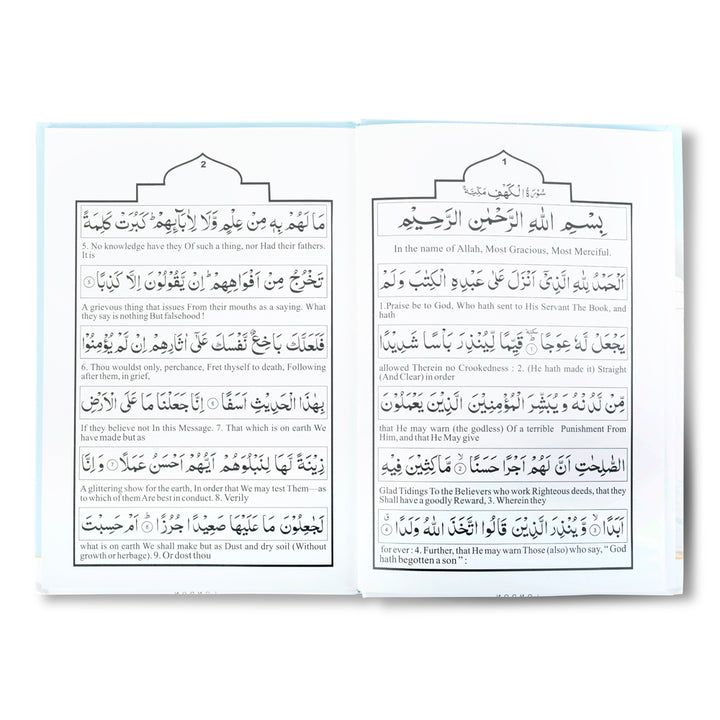 1
سُوْرَةُ الْكَهْفِ مَكِّيَّةٌ
بِسْمِ اللهِ الرَّحْمٰنِ الرَّحِيْمِ
In the name of Allah, Most Gracious, Most Merciful.
اَلْحَمْدُ لِلّٰهِ الَّذِيْۤ اَنْزَلَ عَلٰى عَبْدِهِ الْكِتٰبَ وَلَمْ
1.Praise be to God, Who hath sent to His Servant The Book, and
hath
يَجْعَلْ لَّهٗ عِوَجًا ① قَيِّمًا لِّيُنْذِرَ بَاْسًا شَدِيْدًا
allowed Therein no Crookedness : 2. (He hath made it) Straight
(And Clear) in order
مِّنْ لَّدُنْهُ وَيُبَشِّرَ الْمُؤْمِنِيْنَ الَّذِيْنَ يَعْمَلُوْنَ
that He may warn (the godless) Of a terrible Punishment From
Him, and that He May give
الصّٰلِحٰتِ اَنَّ لَهُمْ اَجْرًا حَسَنًا ② مَّاكِثِيْنَ فِيْهِ
Glad Tidings To the Believers who work Righteous deeds, that they
Shall have a goodly Reward, 3. Wherein they
اَبَدًا ③ وَّيُنْذِرَ الَّذِيْنَ قَالُوا اتَّخَذَ اللهُ وَلَدًا ④
for ever: 4. Further, that He may warn Those (also) who say, “ God
hath begotten a son” :
2
مَا لَهُمْ بِهٖ مِنْ عِلْمٍ وَّلَا لِاٰبَآئِهِمْ ؕ كَبُرَتْ كَلِمَةً
5. No knowledge have they Of such a thing, nor Had their fathers.
It is
تَخْرُجُ مِنْ اَفْوَاهِهِمْ ؕ اِنْ يَّقُوْلُوْنَ اِلَّا كَذِبًا ⑤
A grievous thing that issues From their mouths as a saying. What
they say is nothing But falsehood !
فَلَعَلَّكَ بَاخِعٌ نَّفْسَكَ عَلٰۤى اٰثَارِهِمْ اِنْ لَّمْ يُؤْمِنُوْا
6. Thou wouldst only, perchance, Fret thyself to death, Following
after them, in grief,
بِهٰذَا الْحَدِيْثِ اَسَفًا ⑥ اِنَّا جَعَلْنَا مَا عَلَى الْاَرْضِ
If they believe not In this Message. 7. That which is on earth We
have made but as
زِيْنَةً لَّهَا لِنَبْلُوَهُمْ اَيُّهُمْ اَحْسَنُ عَمَلًا ⑦ وَاِنَّا
A glittering show for the earth, In order that We may test Them—as
to which of them Are best in conduct. 8. Verily
لَجٰعِلُوْنَ مَا عَلَيْهَا صَعِيْدًا جُرُزًا ⑧ اَمْ حَسِبْتَ
what is on earth We shall make but as Dust and dry soil (Without
growth or herbage). 9. Or dost thou